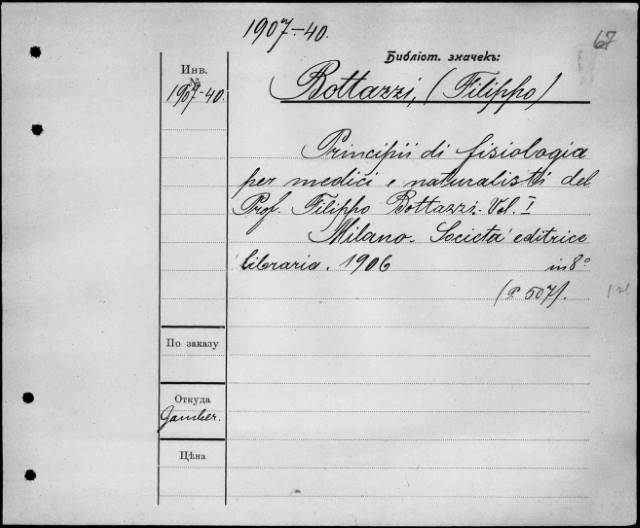 1907-40.
67
Библiот. значекъ:
Инв.
№
1907-40.
Bottazzi, (Filippo)
Principii di fisiologia
per medici e naturalisti del
Prof. Filippo Bottazzi. Vol. I
Milano. Società editrice
libraria. 1906 in 8º
(P. 507).
По заказу
Откуда
Цѣна